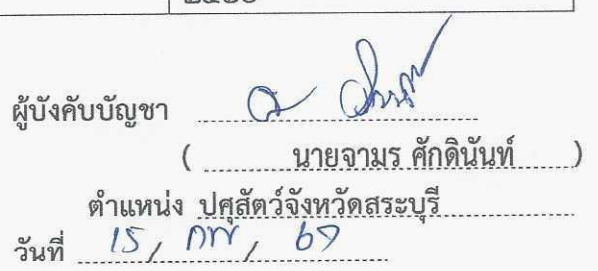 ผู้บังคับบัญชา
( นายจามร ศักดินันท์ )
ตำแหน่ง ปศุสัตว์จังหวัดสระบุรี
วันที่ 15, กพ, 67